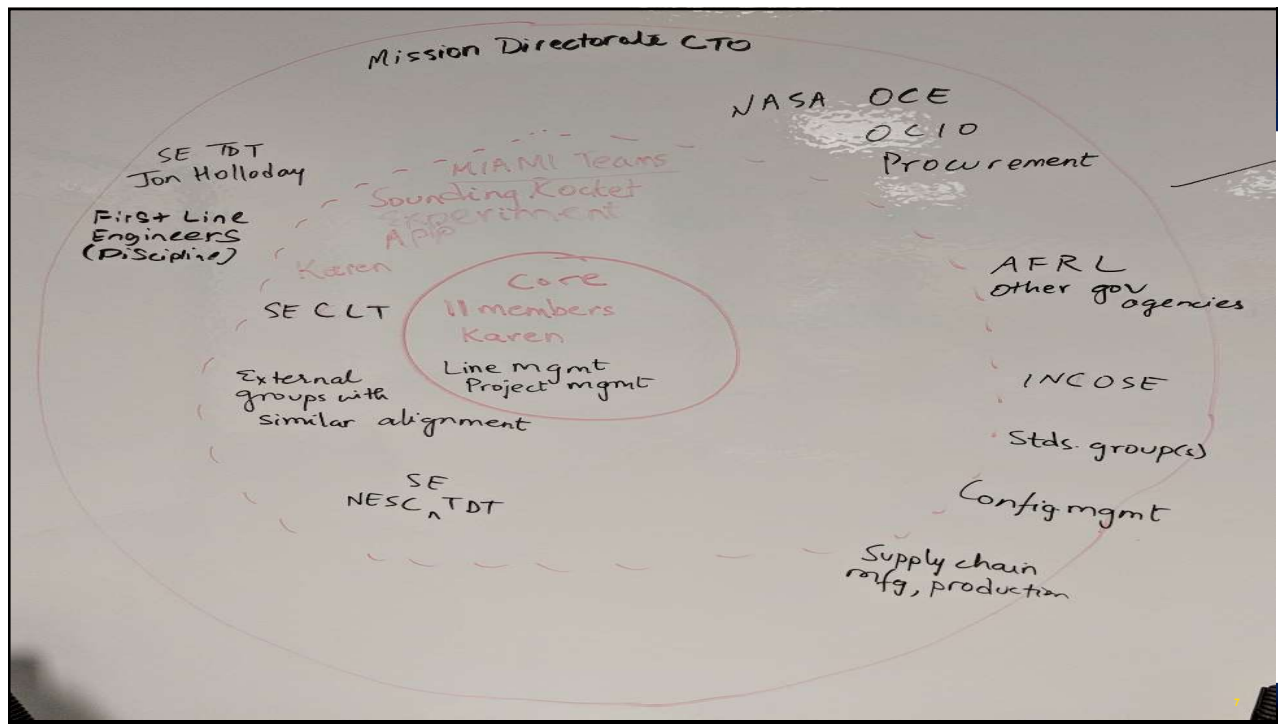 Mission Directorate CTO
NASA OCE
OCIO
Procurement
SE TDT
Jon Holloday
First Line
Engineers
(Discipline)
MIAMI Teams
Sounding Rocket
Experiment
APP
Karen
Core
11 members
Karen
Line mgmt
Project mgmt
SE CLT
External
groups with
similar alignment
SE
NESC ^ TDT
AFRL
other gov
agencies
INCOSE
Stds. group(s)
Config mgmt
Supply chain
mfg, production
7